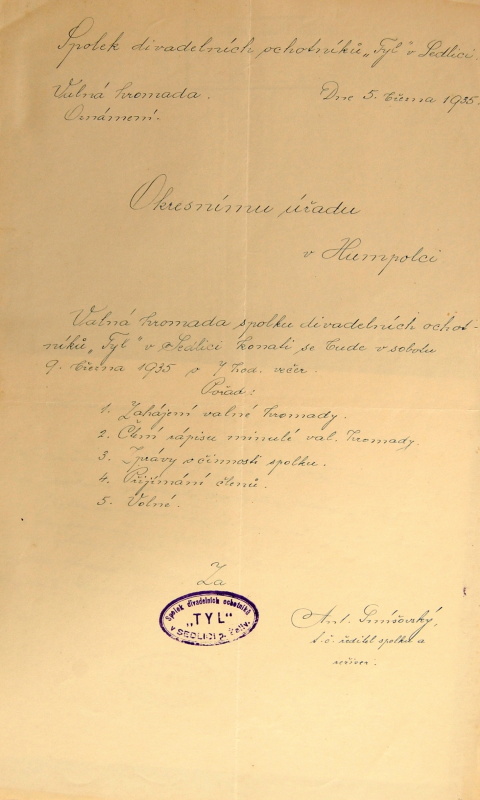 Spolek divadelních ochotníků „Tyl" v Sedlici.
Valná hromada.
Dne 5. března 1935.
Oznámení.
Okresnímu úřadu
v Humpolci
Valná hromada spolku divadelních ochot-
níků „Tyl" v Sedlici konati se bude v sobotu
9. března 1935 o 7 hod. večer.
Pořad:
1. Zahájení valné hromady.
2. Čtení zápisu minulé val. hromady.
3. Zprávy o činnosti spolku.
4. Přijímání členů.
5. Volné.
Za
Spolek divadelních ochotníků
„TYL"
v SEDLICI p. Želiv.
Ant.
t. č. ředitel spolku a
režiser.